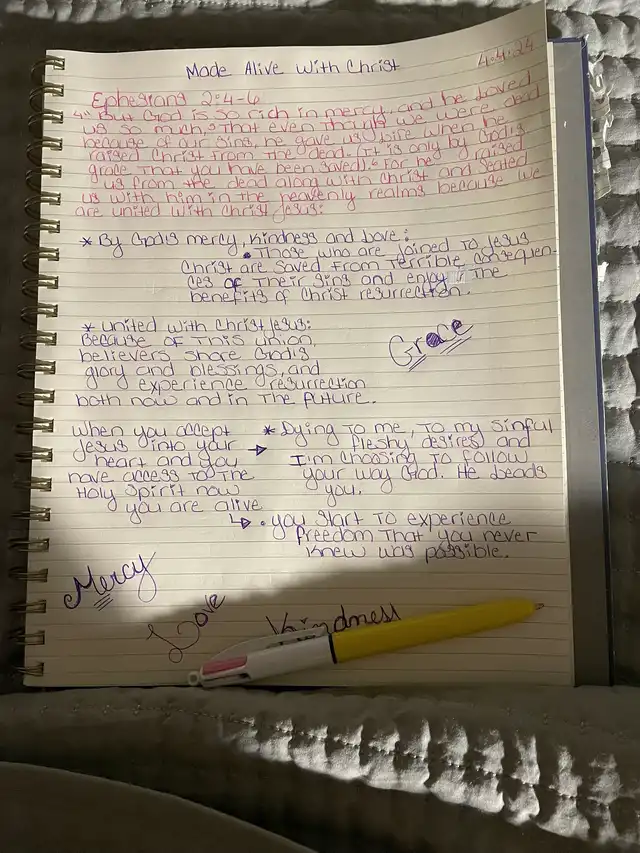 Made Alive With Christ
4.4.24
Ephesians 2:4-6
4" But God is so rich in mercy, and he loved
us so much, 5 that even though we were dead
because of our sins, he gave us life when he
raised Christ from the dead. (It is only by God's
grace that you have been saved) 6 For he raised
us from the dead along with Christ and seated
us with him in the heavenly realms because we
are united with Christ Jesus.
* By God's mercy, kindness and Love:
• Those who are joined to Jesus
Christ are saved from terrible consequen-
ces of their sins and enjoy the
benefits of Christ resurrection.
* united with Christ Jesus:
Because of this union,
believers share God's
glory and blessings, and
experience resurrection
both now and in the future.
Grace
When you accept
Jesus into your
heart and you
have access to the
Holy Spirit now
you are alive
* Dying to me, to my sinful
fleshy desires and
I'm choosing to follow
your way God. He leads
you.
• you start to experience
freedom that you never
knew was possible.
Mercy
Love
Kindness